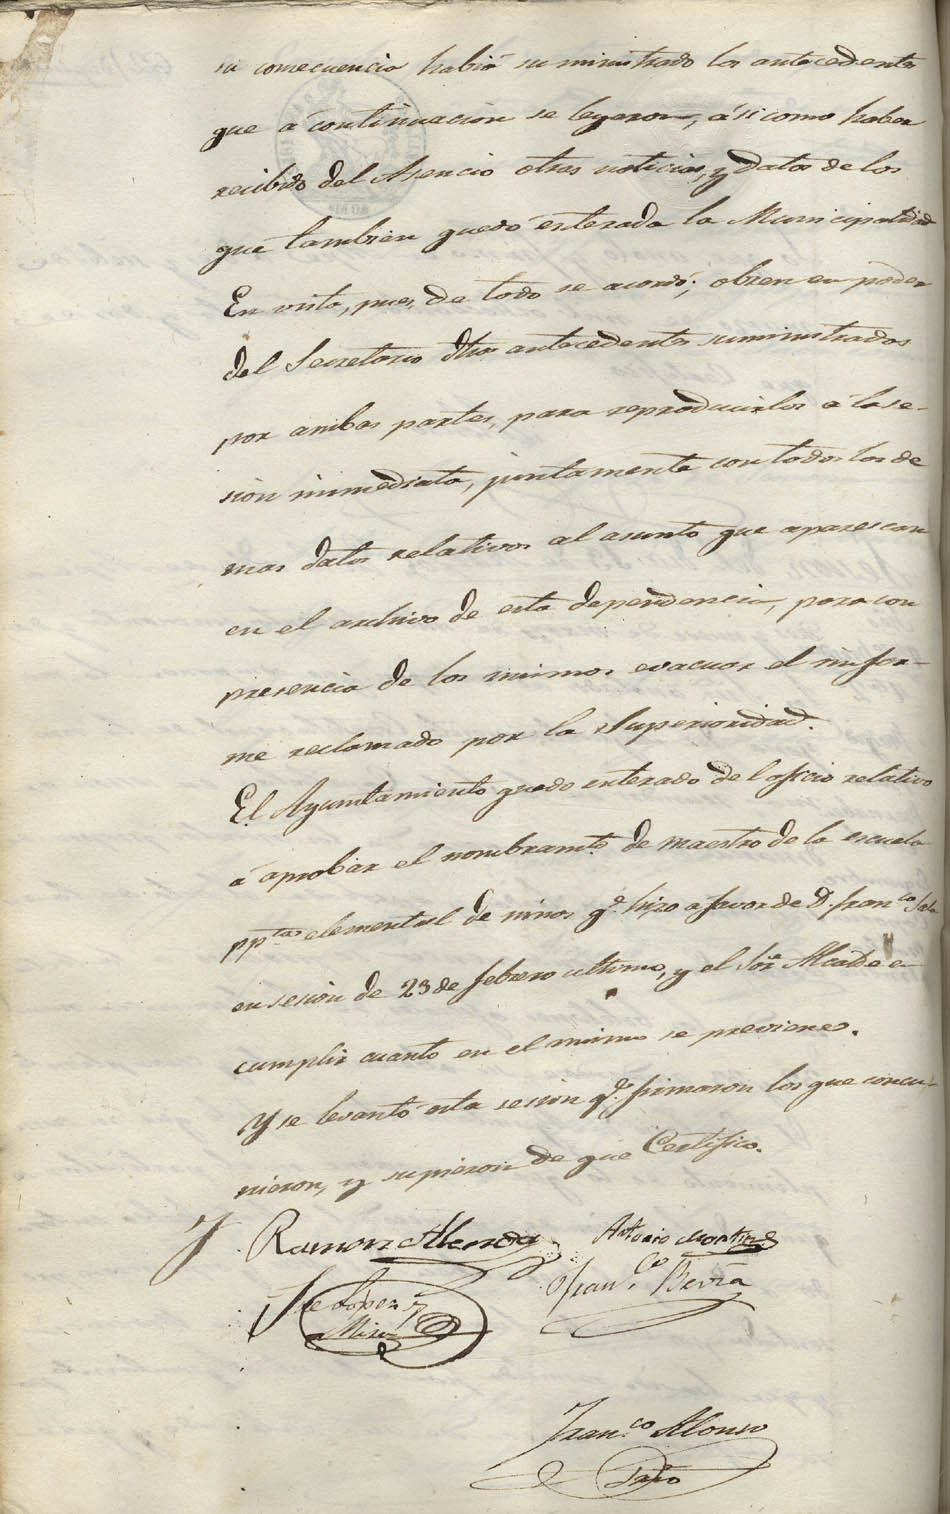 su consecuencia habia suministrado los antecedentes
que á continuacion se leyeron, ásicomo haber
recibido del Asencio otras noticias, y datos de los
que tambien quedó enterada la Municipalidad
En vista, pues, de todo se acordó; obren en poder
del Secretario dhos antecedentes suministrados
por ambas partes, para reproducirlos á la se-
sion inmediata, juntamente con todos los de
mas datos relativos al asunto que aparescan
en el archivo de esta dependencia, para con
presencia de los mismos evacuar el infor-
me reclamado por la Superioridad.
El Ayuntamiento quedo enterado del oficio relativo
á aprobar el nombramto. de maestro de la escuela
ppta. elemental de niños qe. hizo a favor de D. Franco.
en sesion de 23 de febrero ultimo, y el Sor. Alcalde en
cumplir cuanto en el mismo se previene.
Y se levantó esta sesion qe. firmaron los que concu-
rrieron, y supieron de que Certifico.
Ramon Alenda Antonio Martinez
Jose Lopez y Franco. Beviá
Mira
Franco. Alonso